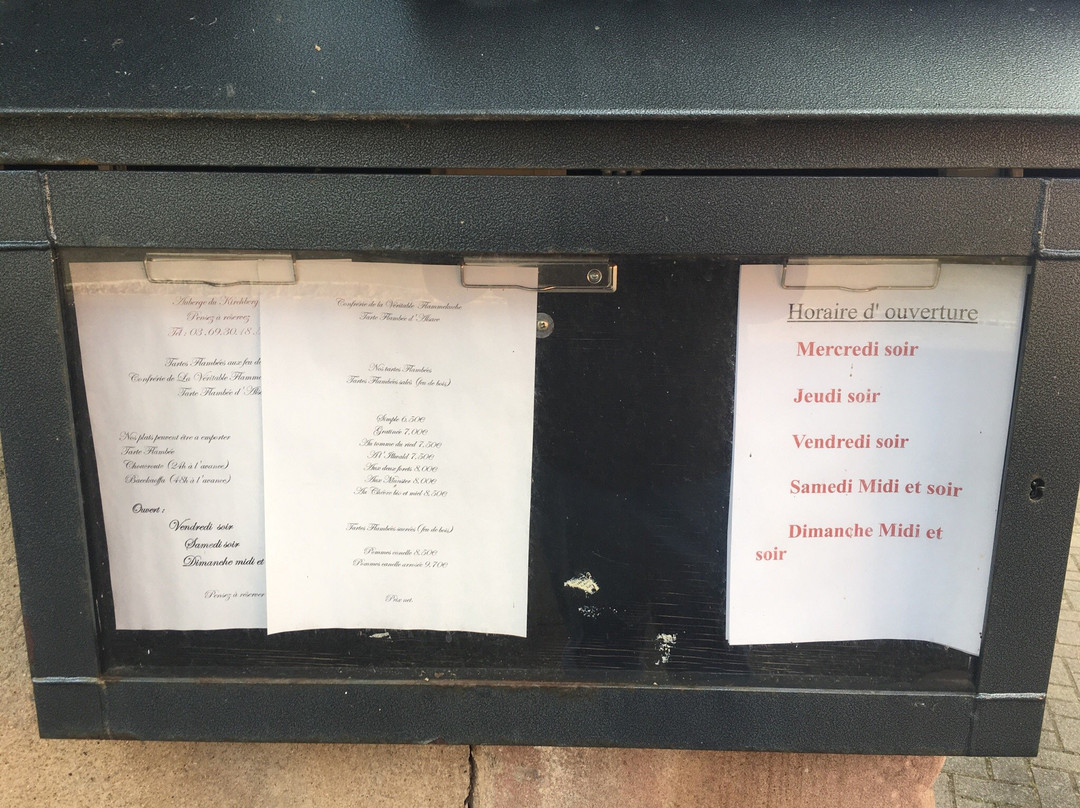 Auberge du Kirchberg
Pensez à réserver
Tél : 03.69.30.18.
Tartes Flambées aux feu de
Confrérie de La Véritable Flamme
Tarte Flambée d'Alsa
Nos plats peuvent être a emporter
Tarte Flambée
Choucroute (24h à l'avance)
Baeckaoffa (48h à l'avance)
Ouvert :
Vendredi soir
Samedi soir
Dimanche midi et
Pensez à réserver
Confrérie de la Véritable Flammekueche
Tarte Flambée d'Alsace
Nos tartes Flambées
Tartes Flambées salés (feu de bois)
Simple 6,50€
Gratinée 7,00€
Au tomme du ried 7,50€
A l'Illwald 7,50€
Aux deux forets 8,00€
Aux Munster 8,00€
Au Chèvre bis et miel 8,50€
Tartes Flambées sucrées (feu de bois)
Pommes canelle 8,50€
Pommes canelle arrosée 9,70€
Prix net
Horaire d' ouverture
Mercredi soir
Jeudi soir
Vendredi soir
Samedi Midi et soir
Dimanche Midi et
soir